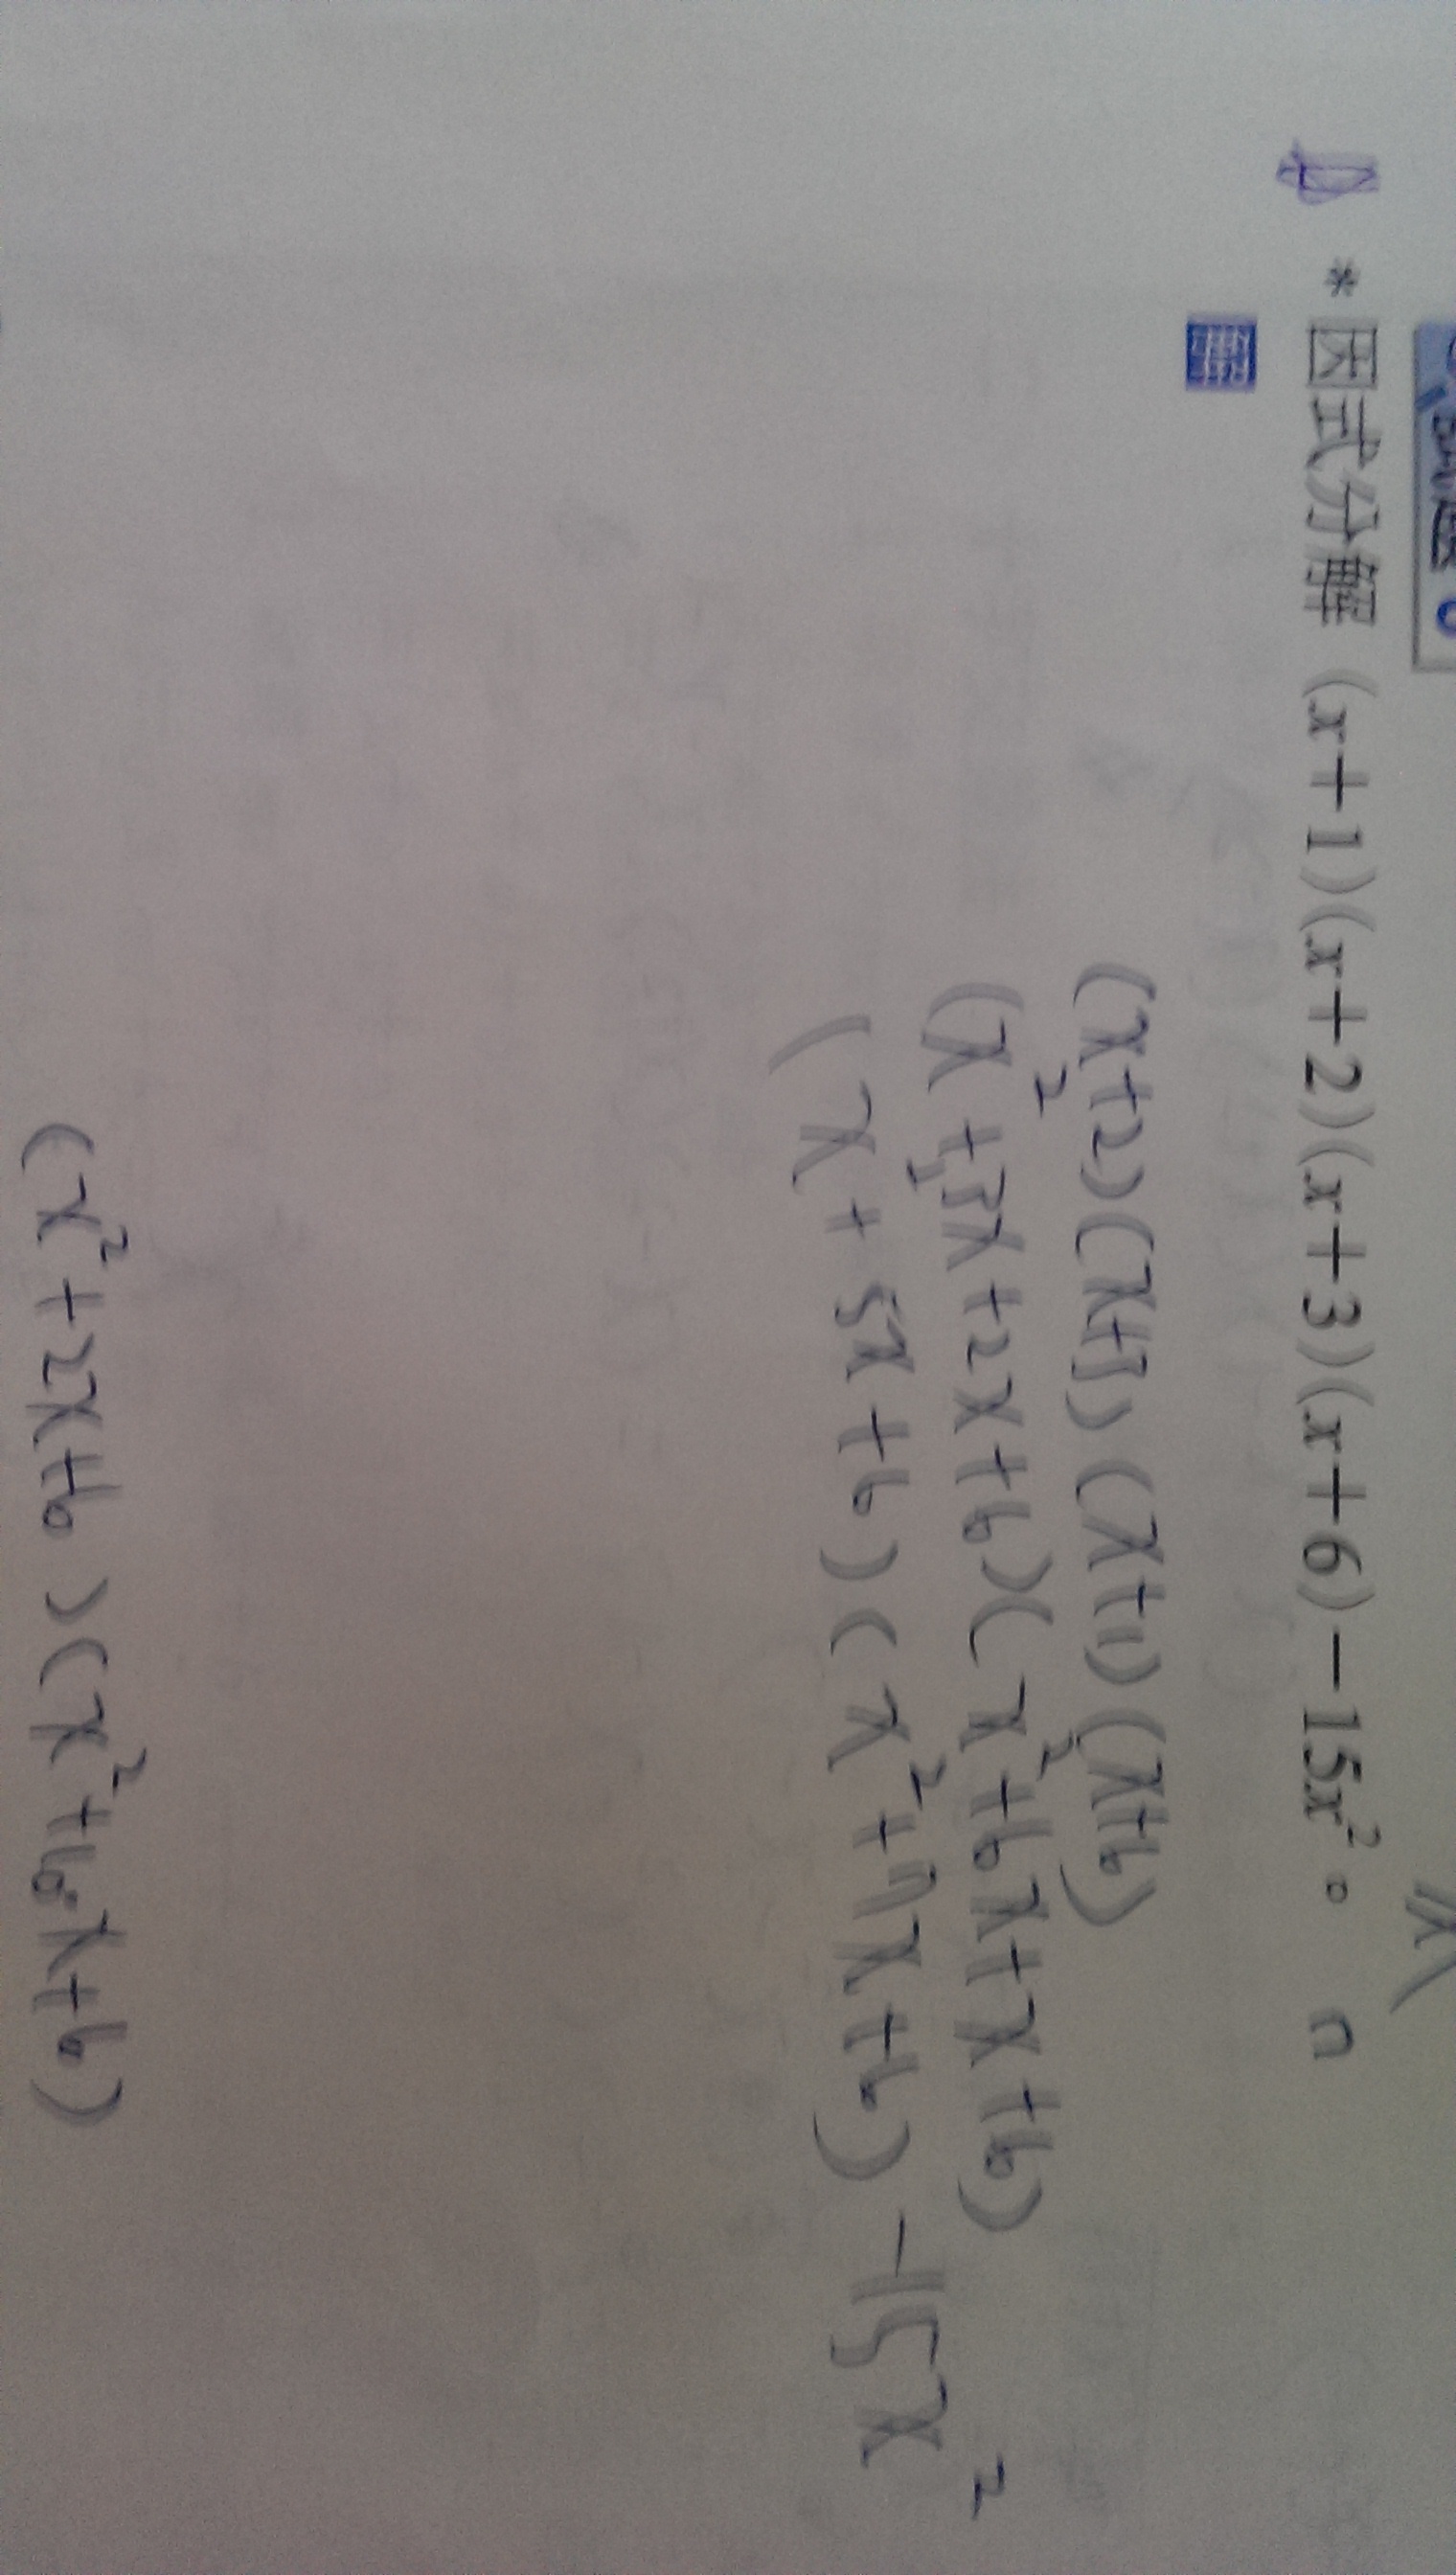 * 因式分解 (x+1)(x+2)(x+3)(x+6)-15x²。
(x+2)(x+3)(x+1)(x+6)
(x²+3x+2x+6)(x²+6x+x+6)
(x²+5x+6)(x²+7x+6)-15x²
(x²+2x+6)(x²+10x+6)